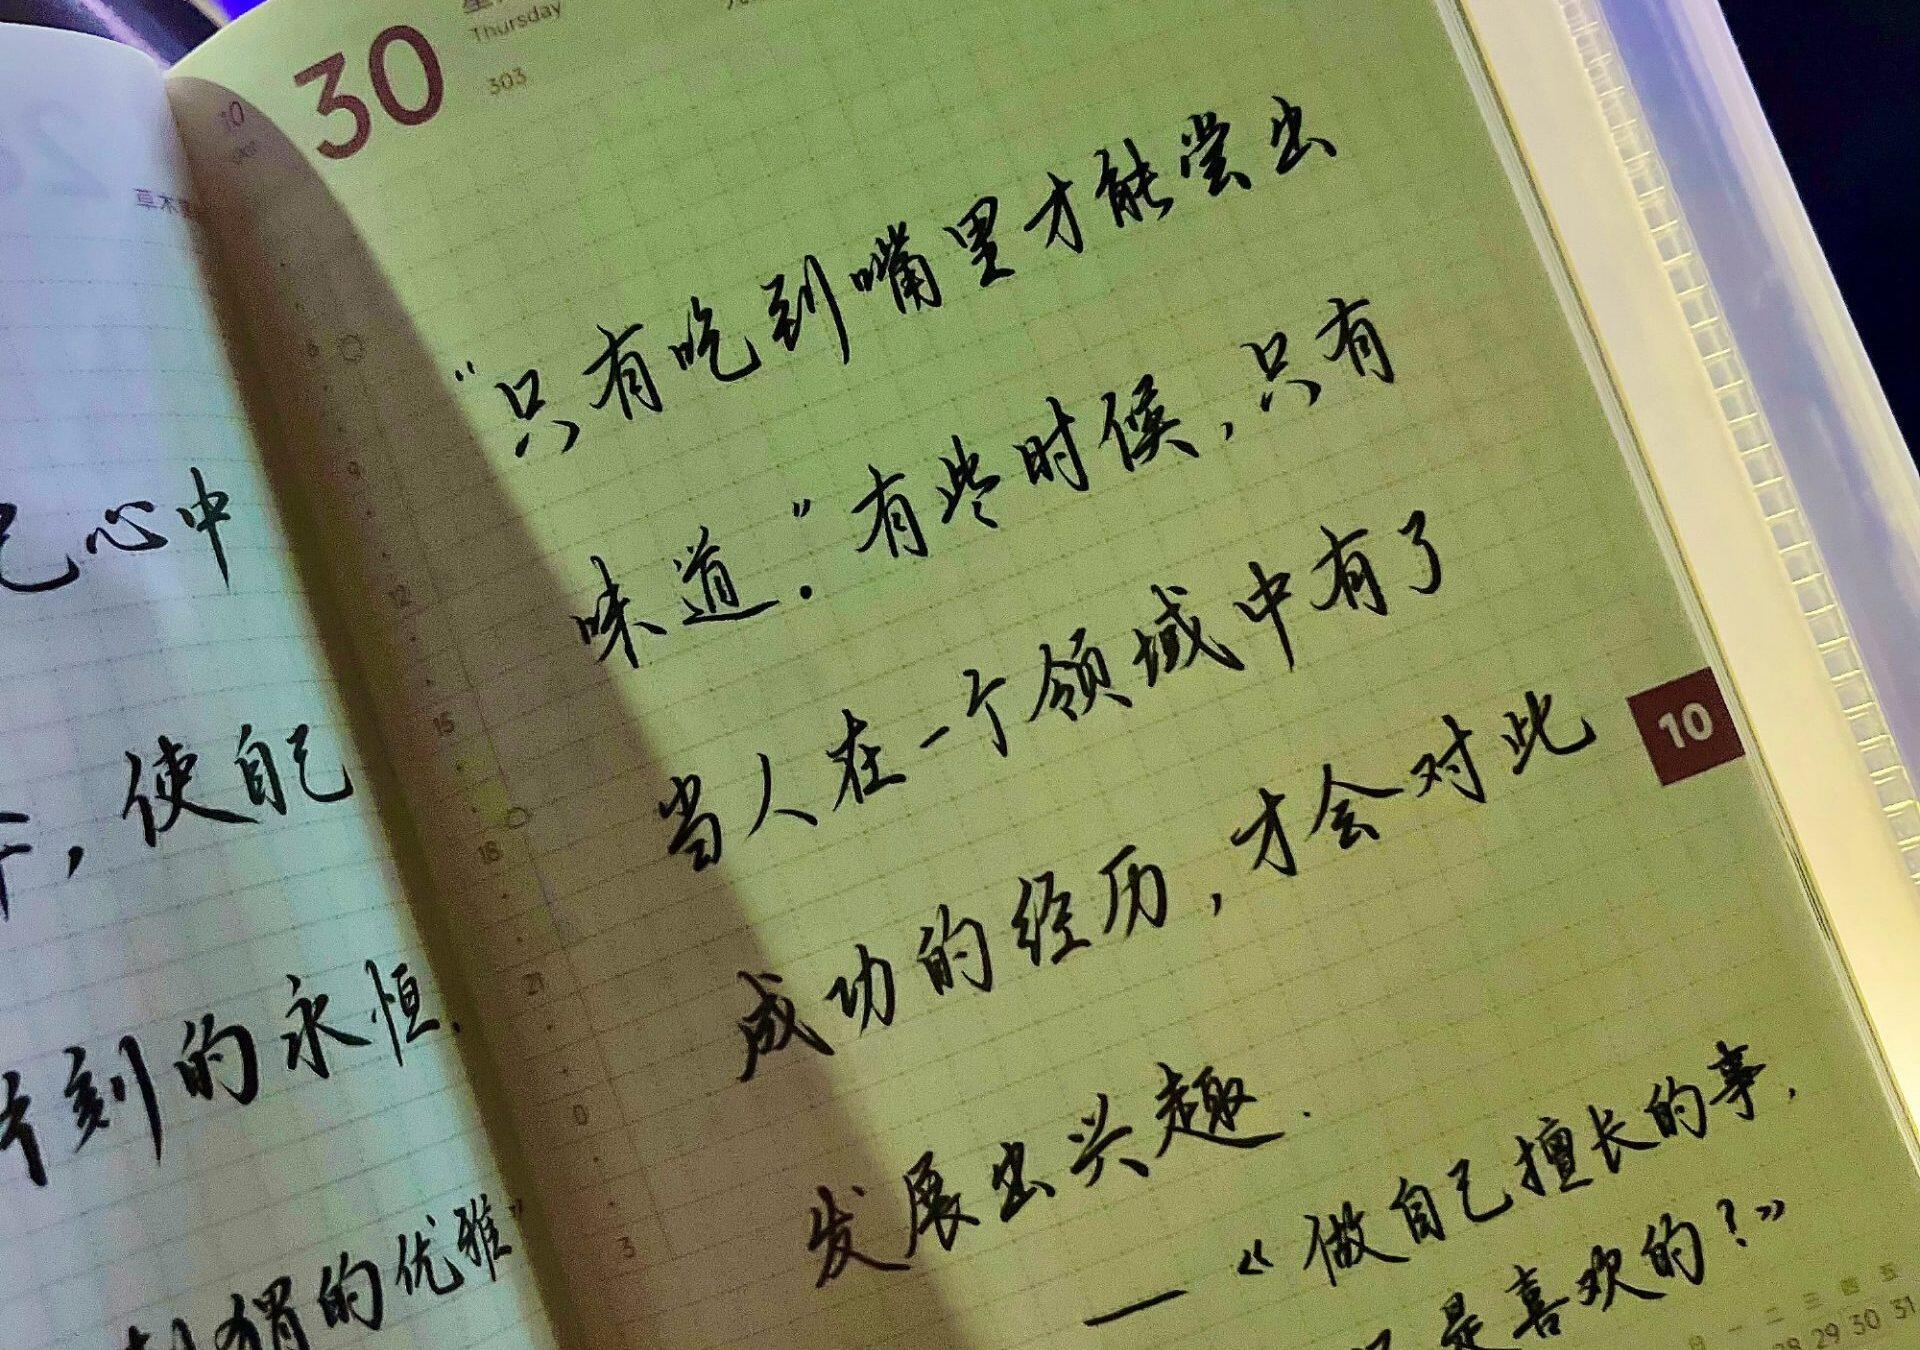 30
Thursday
303
10
"只有吃到嘴里才能尝出
味道."有些时候,只有
当人在一个领域中有了
成功的经历,才会对此
发展出兴趣.
——《做自己擅长的事,
是喜欢的?》
10
6
9
12
15
18
21
0
3
一 二 三 四 五
28 29 30 31
草木
心中
,使自己
刻的永恒.
猬的优雅"